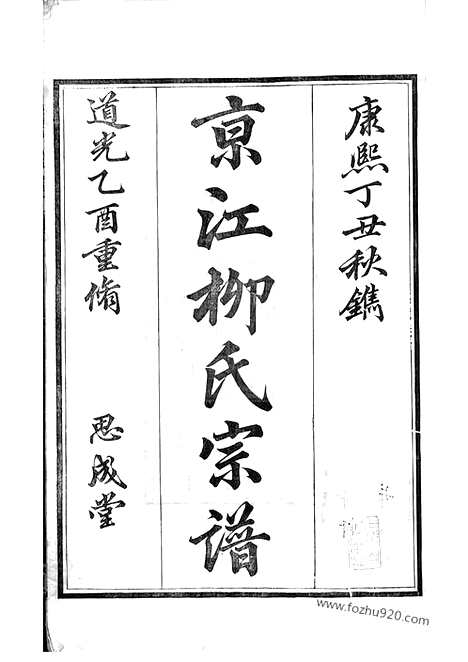 康熙丁丑秋鐫
京江柳氏宗譜
道光乙酉重脩
思成堂
www.fozhu920.com